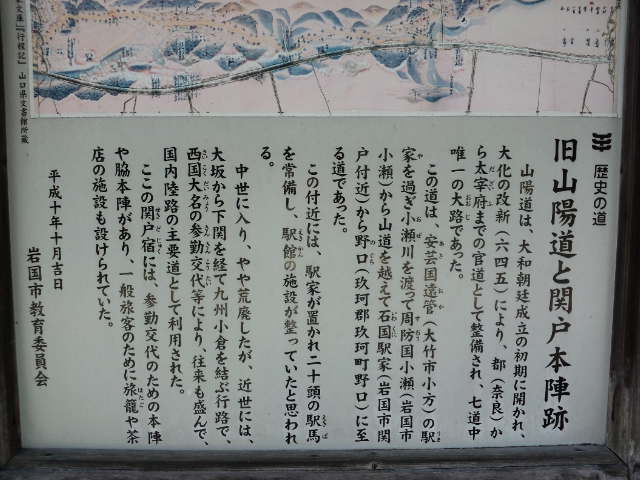 歴史の道
旧山陽道と関戸本陣跡
山陽道は、大和朝廷成立の初期に開かれ、
大化の改新(六四五)により、都(奈良)か
ら太宰府までの官道として整備され、七道中
唯一の大路であった。
この道は、安芸国遠管(大竹市小方)の駅
家を過ぎ小瀬川を渡って周防国小瀬(岩国市
小瀬)から山道を越えて石国駅家(岩国市関
戸付近)から野口(玖珂郡玖珂町野口)に至
る道であった。
この付近には、駅家が置かれ二十頭の駅馬
を常備し、駅館の施設が整っていたと思われ
る。
中世に入り、やや荒廃したが、近世には、
大坂から下関を経て九州小倉を結ぶ行路で、
西国大名の参勤交代等により、往来も盛んで、
国内陸路の主要道として利用された。
ここの関戸宿には、参勤交代のための本陣
や脇本陣があり、一般旅客のために旅籠や茶
店の施設も設けられていた。
平成十年十月吉日
岩国市教育委員会
文庫『行程記』 山口県文書館所蔵